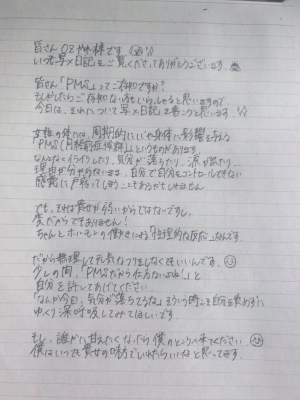 皆さん
いつも写メ日記をご覧くださってありがとうございます。
皆さん「PMS」ってご存知ですか?
もしかしたらご存知ない方もいらっしゃると思いますので、
今日は、それについて写メ日記を書こうと思います。
女性の体には、周期的に心や身体に影響を与える
「PMS(月経前症候群)」というものがあります。
なんとなくイライラしたり、気分が落ちたり、涙が出たり…
理由が分からないまま、自分で自分をコントロールできない
感覚に戸惑ってしまうこともあるかもしれません。
でも、それは貴女が弱いからではないですし、
変だからでもありません!
ちゃんとホルモンの働きによる「生理的な反応」なんです
だから無理して元気なフリをしなくてもいいんです。
少しの間、「PMSだから仕方ないよね!」と
自分を許してあげてください
「なんか今日、気分が落ちてるな」そういう時こそ自分を責めずに
ゆっくり深呼吸してみてほしいです
もし、誰かに甘えたくなったら僕のところへ来てください
僕はいつでも貴女の味方でいれたらいいなと思ってます。